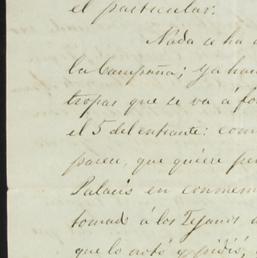 el particular.
Nada se ha
la Campaña; ya han
tropas que se va á for
el 5 del entrante: com
parece, que quiere per
Palacio en conmem
tomado á los Tejanos
que lo votó y pidió,